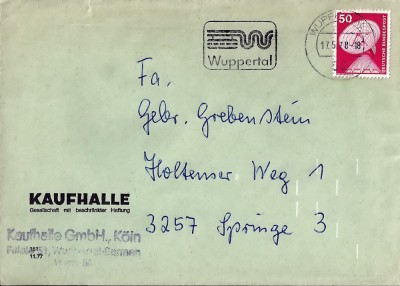 50
DEUTSCHE BUNDESPOST
WUPPERTAL
17.5.78-18
Wuppertal
Fa.
Gebr. Grebenstein
Holtenser Weg 1
3257 Springe 3
KAUFHALLE
Gesellschaft mit beschränkter Haftung
Kaufhalle GmbH., Köln
Wuppertal-Barmen
11.77